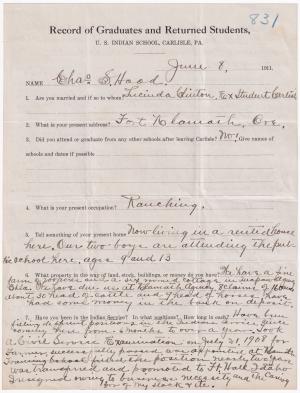 831
Record of Graduates and Returned Students,
U. S. INDIAN SCHOOL, CARLISLE, PA.
June 8, 1911.
NAME Chas S. Hood.
1. Are you married and if so to whom? Lucinda Clinton, Ex Student Carlisle
2. What is your present address? Fort Klamath, Ore.
3. Did you attend or graduate from any other schools after leaving Carlisle? No. Give names of
schools and dates if possible
4. What is your present occupation? Ranching.
5. Tell something of your present home Now living in a rented house
here. Our two boys are attending the pub-
lic school here, ages 9 and 13
6. What property in the way of land, stock, buildings, or money do you have? We have a fine
farm of
about 30 head of cattle and 7 head of horses. Have
have some money in the bank on deposit.
7. Have you been in the Indian Service? In what positions? How long in each? Have been
filling different positions in the Indian Service
a Civil Service Examination on July 21, 1908 for
Farmer successfully passed was appointed at
Training School, filled the position nearly two years
was transferred and promoted to Ft. Hall, Idaho
I resigned owing to business necessity and the caring
for of my stock etc.